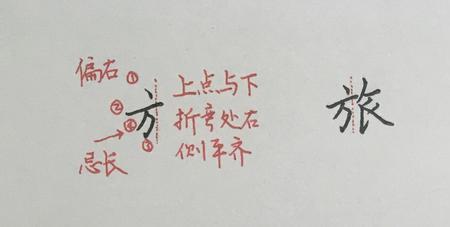 偏右
①
②
④
③
忌长
方
上点与下
折弯处右
侧平齐
旅